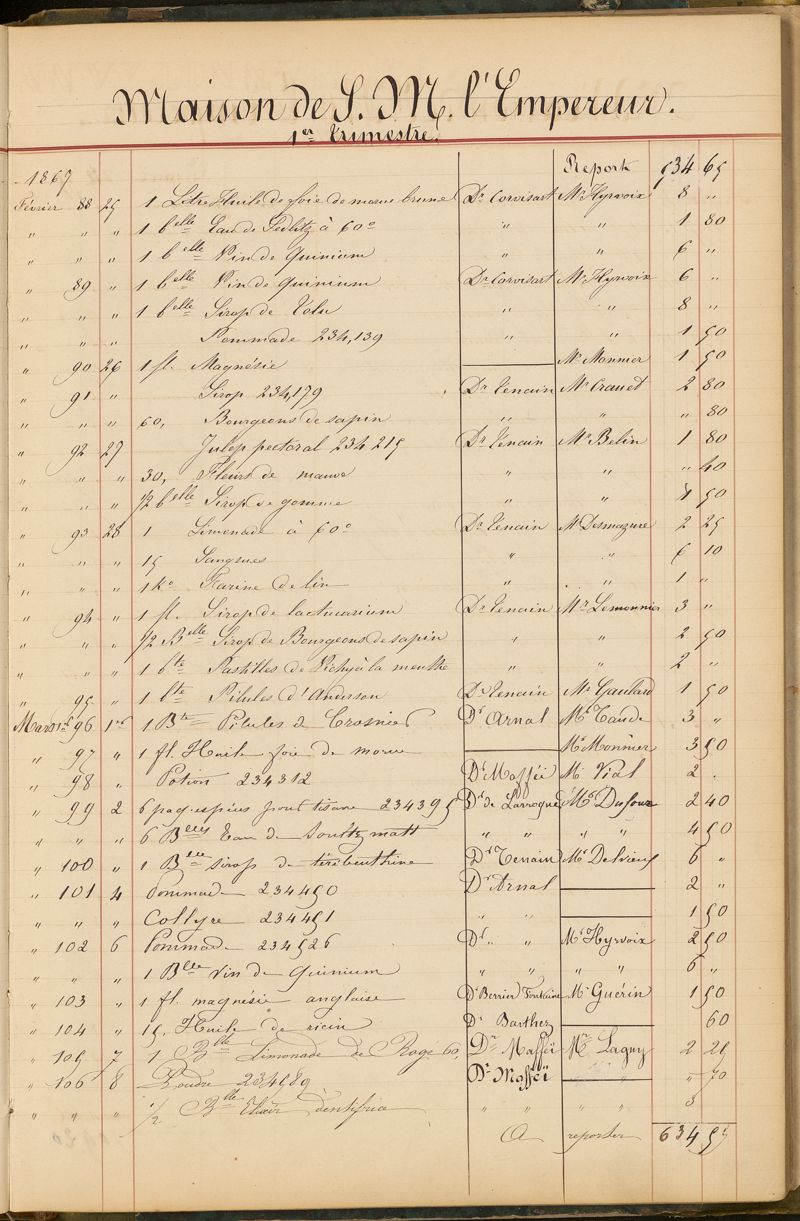 Maison de S. M. l'Empereur.
1er trimestre.
1867 Report 534 65
Février 88 25 1 Litre Huile de foie de morue brune Dr Corvisart Mr Hyrvoix 8 "
" " " 1 belle Eau de Sedlitz à 60c " " 1 80
" " " 1 belle Vin de Quinium " " 6 "
" 89 " 1 belle Vin de Quinium Dr Corvisart Mr Hyrvoix 6 "
" " " 1 belle Sirop de Tolu " " 8 "
" " " Pommade 234,139 " " 1 50
" 90 26 1 fl. Magnésie Mr Monnier 1 50
" 91 " Sirop 234,179 Dr Tenain Mr Crauet 2 80
" " " 60, Bourgeons de sapin " " " 80
" 92 27 Julep pectoral 234 215 Dr Tenain Mr Belin 1 80
" " " 30, Fleurs de mauve " " " 40
" " " 1/2 belle Sirop de gomme " " 1 50
" 93 28 1 Limonade à 60c Dr Tenain Mr Desmazure 2 25
" " " 15 Sangsues " " 6 10
" " " 1 Ko Farine de lin " " 1 "
" 94 " 1 fl. Sirop de lactucarium Dr Tenain Mr Lemonnier 3 "
" " " 1/2 Belle Sirop de Bourgeons de sapin " " 2 50
" " " 1 bte Pastilles de Vichy à la menthe " " 2 "
" 95 " 1 bte Pilules d'Anderson Dr Tenain Mr Gaulard 1 50
Mars 1er 96 1er 1 Bte Pilules de Crosnier Dr Arnal Mr Tande 3 "
" 97 " 1 fl. Huile foie de morue Mr Monnier 3 50
" 98 " Potion 234312 Dr Maffei Mr Vial 2 .
" 99 2 6 paq. espèces pour tisane 234395 Dr de Larroque Mr Dufour 2 40
" " " 6 Blles Eau de Soultzmatt " " " " 4 50
" 100 " 1 Blle sirop de térébenthine Dr Tenain Mr Delvieux 6 "
" 101 4 Pommade 234450 Dr Arnal 2 "
" " " Collyre 234451 " " 1 50
" 102 6 Pommade 234526 Dr " " Mr Hyrvoix 2 50
" " " 1 Blle Vin de Quinium " " " " 6 "
" 103 " 1 fl. magnésie anglaise Dr Berrier Fontaine Mr Guérin 1 50
" 104 " 15, Huile de ricin Dr Barthez 60
" 105 7 1 Blle Limonade de Rogé 60, Dr Maffei Mr Lagny 2 25
" 106 8 Poudre 234589 Dr Maffei " 70
" " " 1/2 Blle Elixir dentifrice " " " " 3
A reporter 634 55